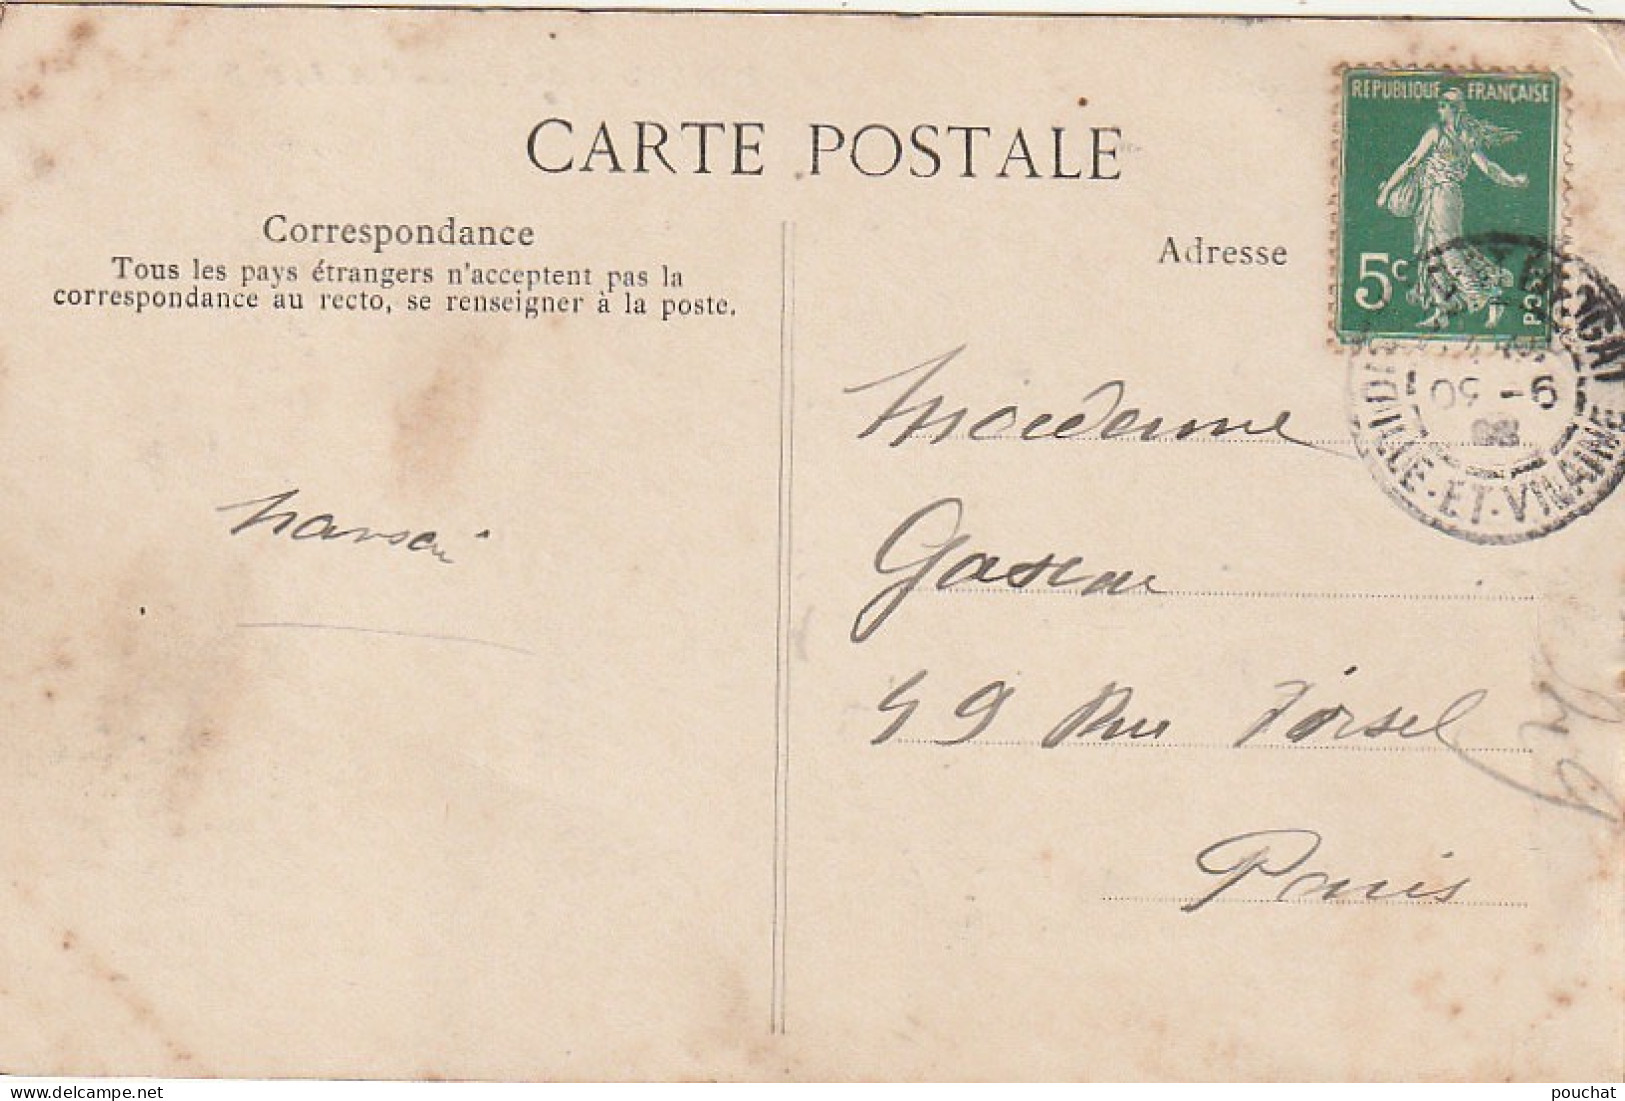 CARTE POSTALE
Correspondance
Tous les pays étrangers n'acceptent pas la
correspondance au recto, se renseigner à la poste.
Adresse
REPUBLIQUE FRANÇAISE
5c
PCD
ILLE-ET-VILAINE
Madame
49 Rue
Paris
delcampe.net
pouchat